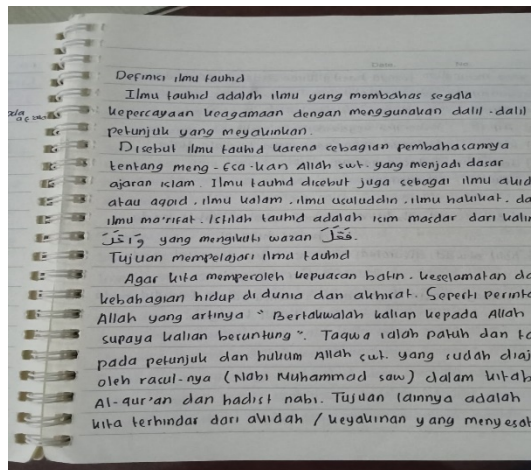 Definisi ilmu tauhid
Ilmu tauhid adalah ilmu yang membahas segala
kepercayaan keagamaan dengan menggunakan dalil-dalil
petunjuk yang meyakinkan.
Disebut ilmu tauhid karena sebagian pembahasannya
tentang meng-Esa-kan Allah swt. yang menjadi dasar
ajaran islam. Ilmu tauhid disebut juga sebagai ilmu
atau aqoid, ilmu kalam, ilmu usuluddin, ilmu hakikat,
ilmu ma'rifat. Istilah tauhid adalah isim masdar dari
yang mengikuti wazan فَعَّلَ.
Tujuan mempelajari ilmu tauhid
Agar kita memperoleh kepuasan batin, keselamatan
kebahagian hidup di dunia dan akhirat. Seperti
Allah yang artinya "Bertakwalah kalian kepada Allah
supaya kalian beruntung". Taqwa ialah patuh dan
pada petunjuk dan hukum Allah swt. yang sudah
oleh rasul-nya (Nabi Muhammad saw) dalam kitab
Al-qur'an dan hadist nabi. Tujuan lainnya adalah
kita terhindar dari akidah / keyakinan yang